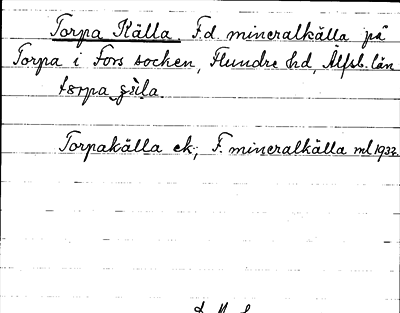 Torpa Källa F.d. mineralkälla på
Torpa i Fors socken, Flundre hd, Älfsb. län
Torpakälla ek, F. mineralkälla ml 1932.